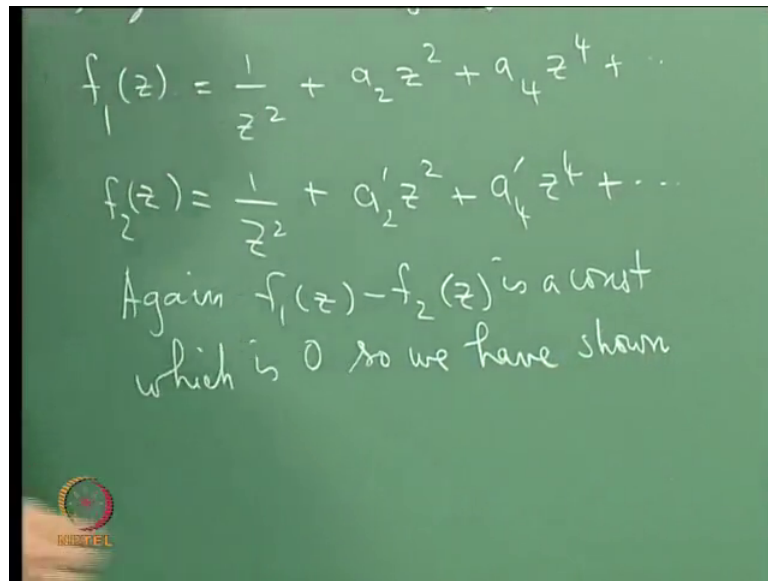 f₁(z) = 1/z² + a₂z² + a₄z⁴ + ...
f₂(z) = 1/z² + a₂'z² + a₄'z⁴ + ...
Again f₁(z) - f₂(z) is a const
which is 0 so we have shown
NPTEL